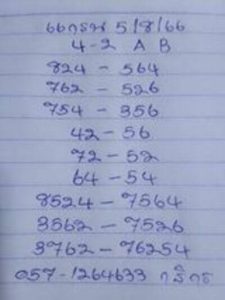 5/8/66
4-2 A B
824-564
762-526
754-356
42-56
72-52
64-54
8524-7564
3562-7526
3762-76254
057-1264633